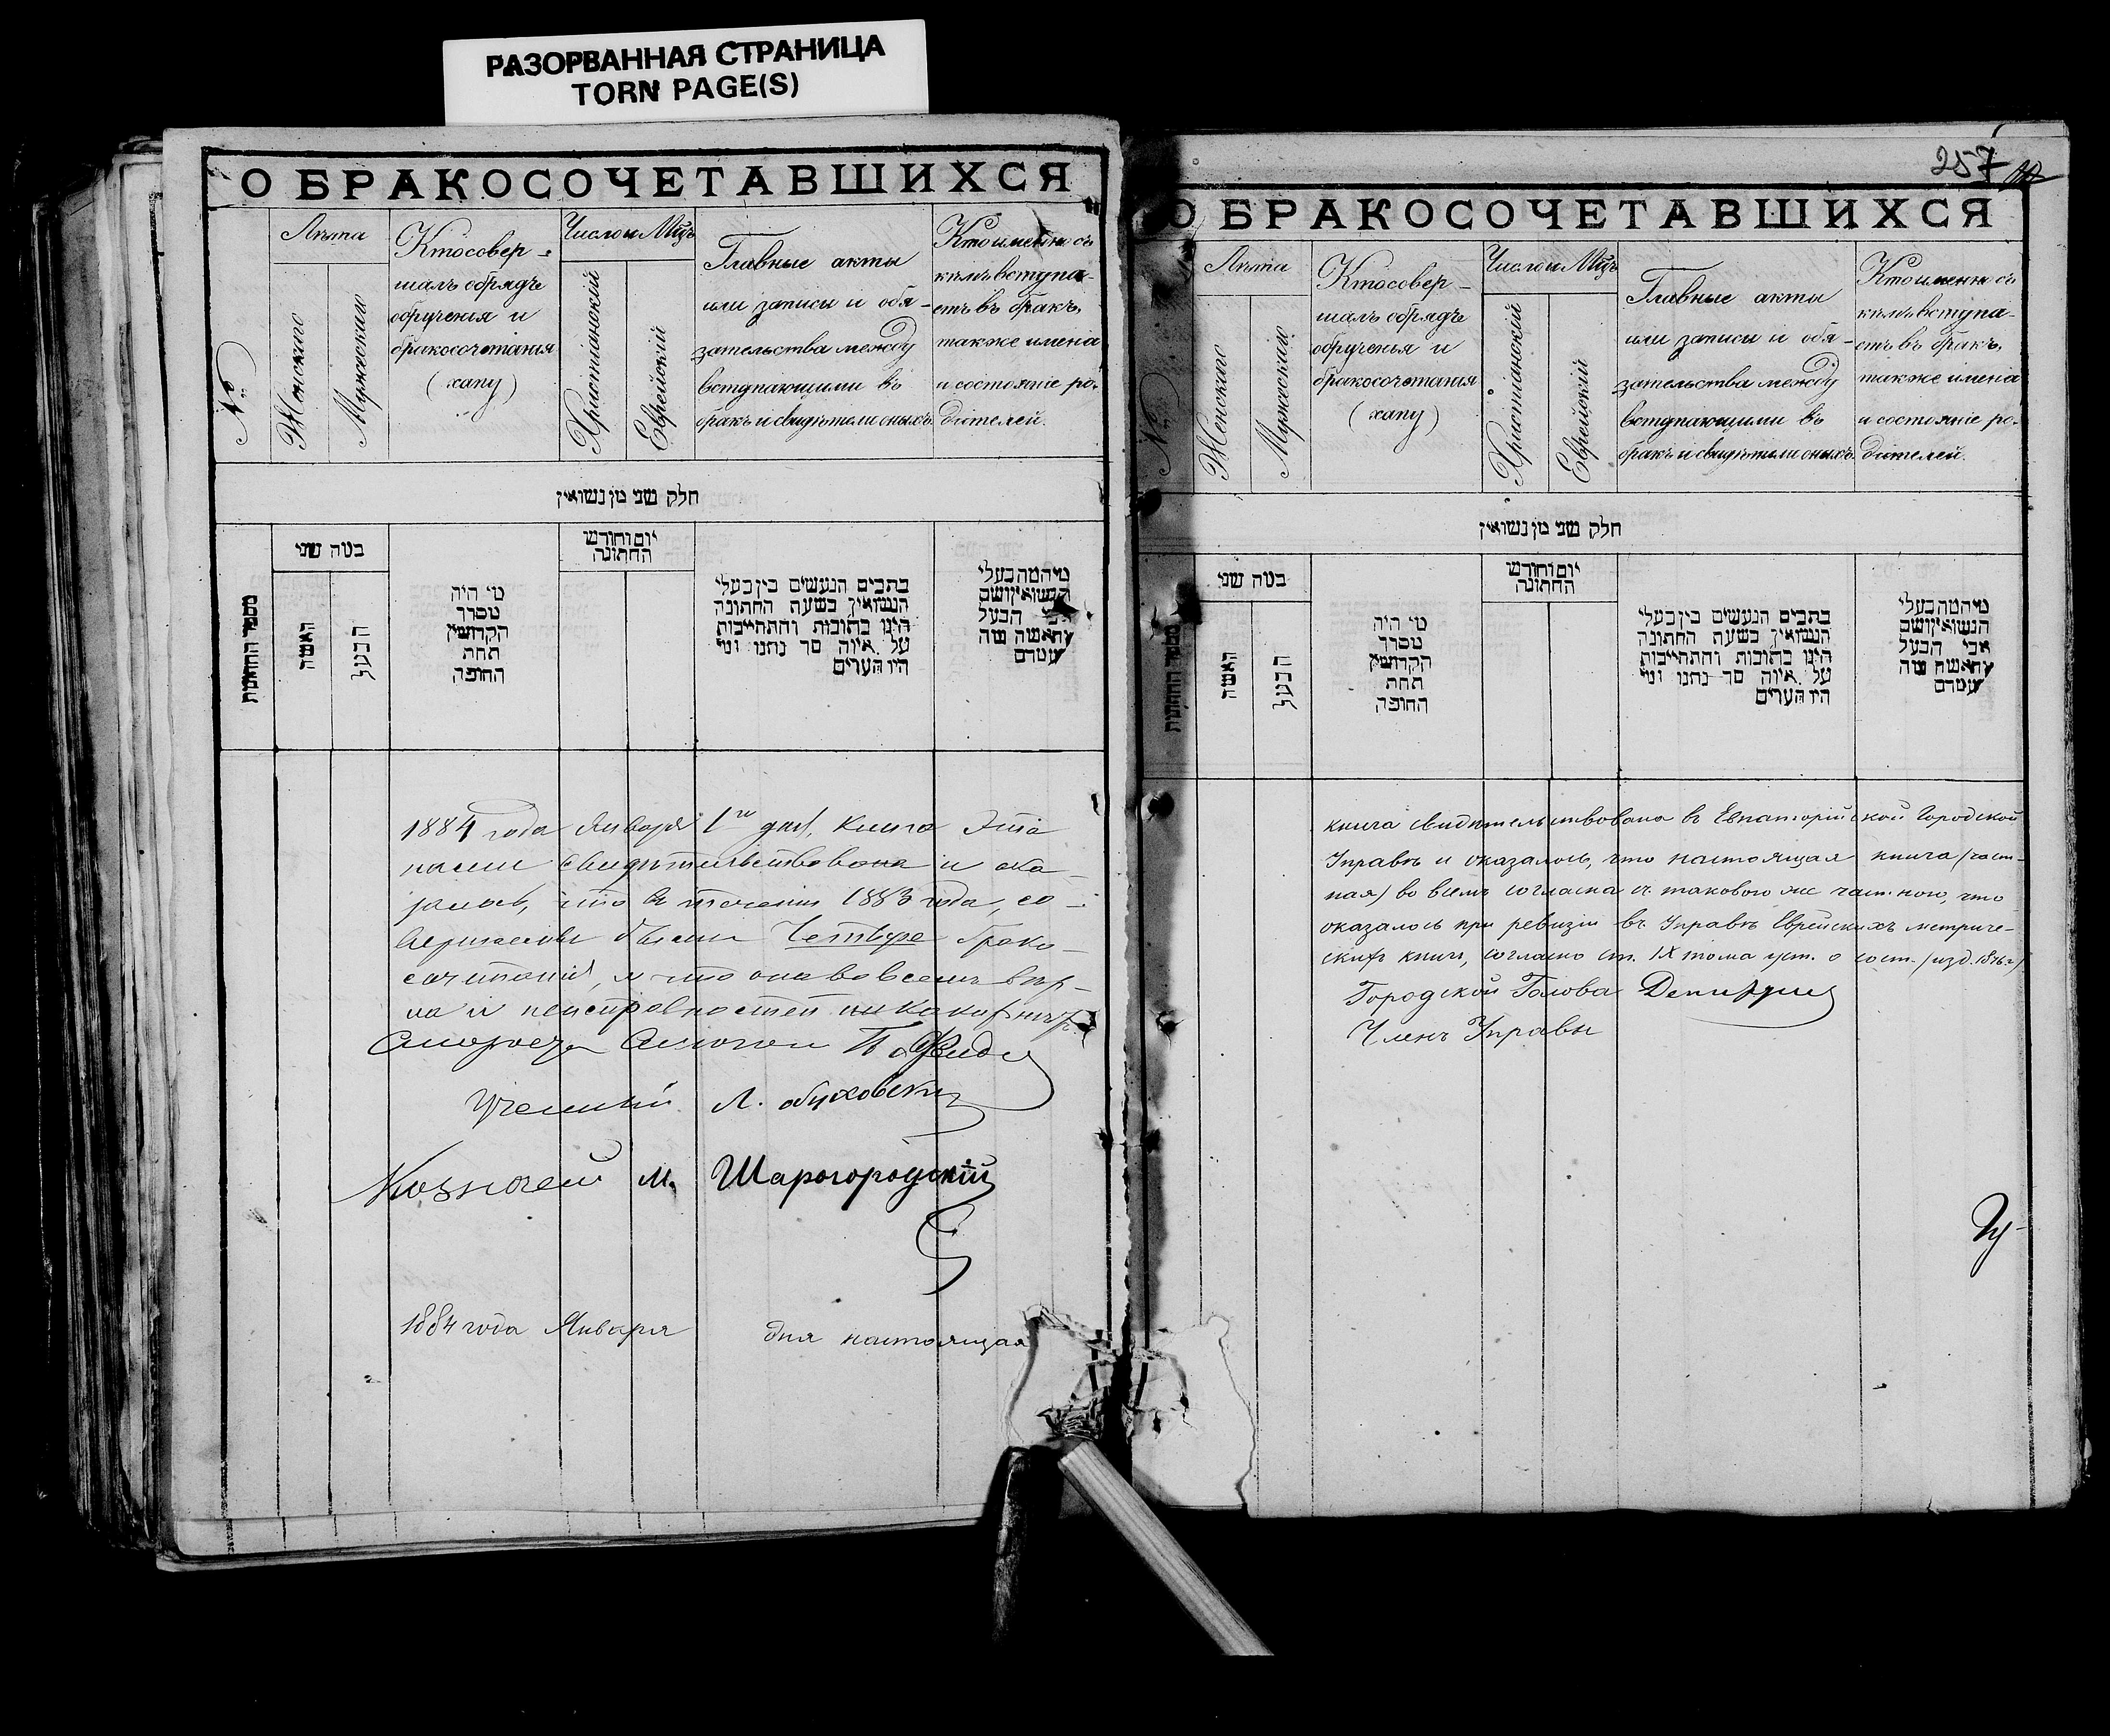 РАЗОРВАННАЯ СТРАНИЦА
TORN PAGE(S)
О БРАКОСОЧЕТАВШИХСЯ
№
Лѣта
Женскаго
Мужескаго
Кто совер-
шалъ обрядъ
обрученія и
бракосочетанія
(хапу)
Число и Мѣц.
Христіанскій
Еврейскій
Главные акты
или записи и обя-
зательства между
вступающими въ
бракъ и свидѣтели оныхъ.
Кто именно съ
кѣмъ вступа-
етъ въ бракъ,
также имена
и состояніе ро-
дителей.
חלק שני מן נשואין
מספר החתונות
כמה שני
האשה
הבעל
מי היה
מסדר
הקדושין
תחת
החופה
יום וחודש
החתונה
כתבים הנעשים בין בעלי
הנשואין בשעת החתונה
היינו כתובות והתחייבות
על איזה סך נתנו ומי
היו העדים
מי המה בעלי
הנשואין ושם
אבי הבעל
והאשה מה
עמדם
1884 года Января 1го дня, книга эта
нами свидѣтельствована и ока-
залось, что въ теченіи 1883 года, со-
вершены были Четыре брако-
сочетанія, и что она во всемъ вѣр-
на и неисправностей никаких нѣтъ
Староста
Ученый Л. Обуховскій
Казначей М. Шарогородскій
1884 года Января дня настоящая
257
О БРАКОСОЧЕТАВШИХСЯ
№
Лѣта
Женскаго
Мужескаго
Кто совер-
шалъ обрядъ
обрученья и
бракосочетанія
(хапу)
Число и Мѣц.
Христіанскій
Еврейскій
Главные акты
или записи и обя-
зательства между
вступающими въ
бракъ и свидѣтели оныхъ.
Кто именно съ
кѣмъ вступа-
етъ въ бракъ,
также имена
и состояніе ро-
дителей.
חלק שני מן נשואין
מספר החתונות
כמה שני
האשה
הבעל
מי היה
מסדר
הקדושין
תחת
החופה
יום וחודש
החתונה
כתבים הנעשים בין בעלי
הנשואין בשעת החתונה
היינו כתובות והתחייבות
על איזה סך נתנו ומי
היו העדים
מי המה בעלי
הנשואין ושם
אבי הבעל
והאשה מה
עמדם
книга свидѣтельствована въ Евпаторійской Городской
Управѣ и оказалось, что настоящая книга (част-
ная) во всемъ согласна съ таковою же частною, что
оказалось при ревизіи въ Управѣ Еврейскихъ метриче-
скихъ книгъ, согласно ст. IX тома уст. о сост. (изд. 1876 г)
Городской Голова
Членъ Управы